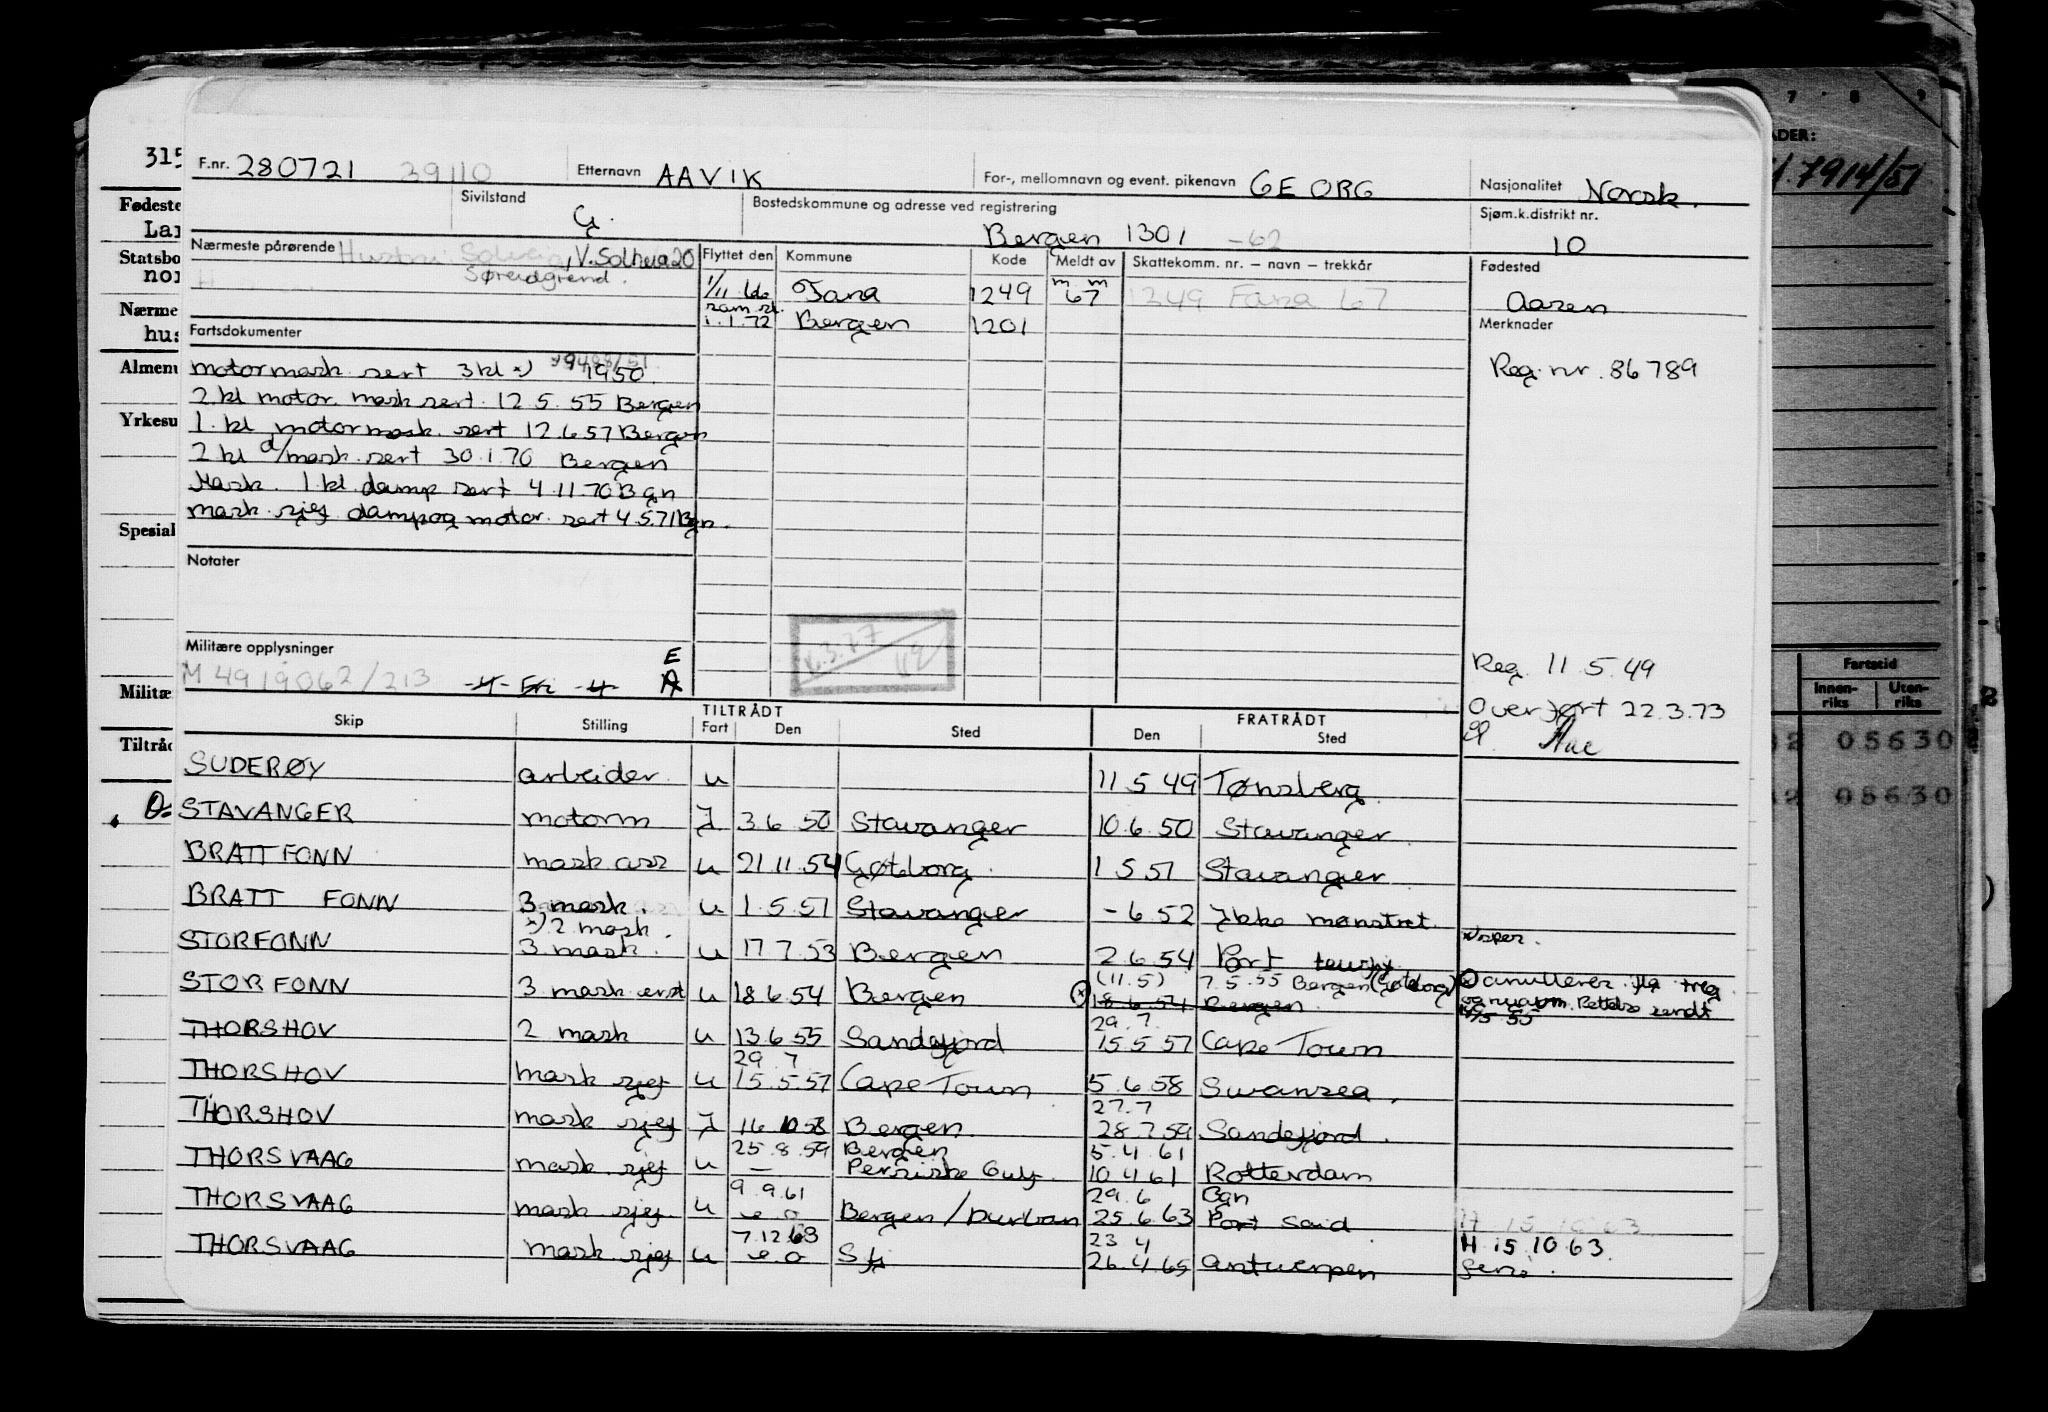 F.nr. 280721 39110 Etternavn AAVIK For-, mellomnavn og event. pikenavn GEORG Nasjonalitet Norsk.
Sivilstand G. Bostedskommune og adresse ved registrering Bergen 1301 -62 Sjøm.k.distrikt nr. 10
Nærmeste pårørende Hustru: Solveig, V. Solheia 20
Søreidgrend.
Flyttet den Kommune Kode Meldt av Skattekomm. nr. – navn – trekkår Fødested
1/11 66 Fana 1249 m m 67 1249 Fana 67 Aasen
sam.sl. 1.1.72 Bergen 1201
Merknader
Reg. nr. 86789
Fartsdokumenter
motormask. sert 3 kl x) 1950.
2 kl motor. mask sert. 12.5.55 Bergen
1. kl motormask. sert 12.6.57 Bergen
2 kl d/mask. sert 30.1.70 Bergen
Mask. 1 kl damp sert 4.11.70 Bgn
mask. sjef damp og motor. sert 4.5.71 Bgn.
Notater
Militære opplysninger E
M 4919062/213 -4- Fri -4- A
Reg. 11.5.49
Overført 22.3.73
Skip Stilling TILTRÅDT Fart Den Sted FRATRÅDT Den Sted
SUDERØY arbeider u 11.5.49 Tønsberg.
STAVANGER motorm J 3.6.50 Stavanger 10.6.50 Stavanger
BRATTFONN mask ass u 21.11.54 Gøtborg. 1.5.51 Stavanger
BRATT FONN 3 mask. u 1.5.51 Stavanger - 6.52 Ikke mønstret.
x) 2 mask.
STORFONN 3 mask. u 17.7.53 Bergen 2.6.54 Port
(11.5) 7.5.55 Bergen (Gøtborg)
STORFONN 3 mask erst u 18.6.54 Bergen (x) 18.6.54 Bergen. (x) anulleres
29.7.
THORSHOV 2 mask u 13.6.55 Sandefjord 15.5.57 Cape Town
29.7
THORSHOV mask sjef u 15.5.57 Cape Town 5.6.58 Swansea.
27.7
THORSHOV mask sjef J 16.10.58 Bergen. 28.7.59 Sandefjord.
25.8.59 Bergen 5.4.61
THORSVAAG mask. sjef u — Persiske Gulf. 10.4.61 Rotterdam
9.9.61 29.6 Bgn
THORSVAAG mask. sjef u Bergen/Durban 25.6.63 Port Said H 15.10.63
7.12.63 23.4 H 15.10.63.
THORSVAAG mask. sjef u 26.4.65 Antwerpen ferie.
315
Fødeste
Lar
Statsbo
nor
Nærme
hus
Almenu
Yrkesu
Spesial
Militæ
Tiltråd
7 8 9
ADER:
7914/51
Fartstid
Innen-riks Uten-riks
2 05630
2 05630